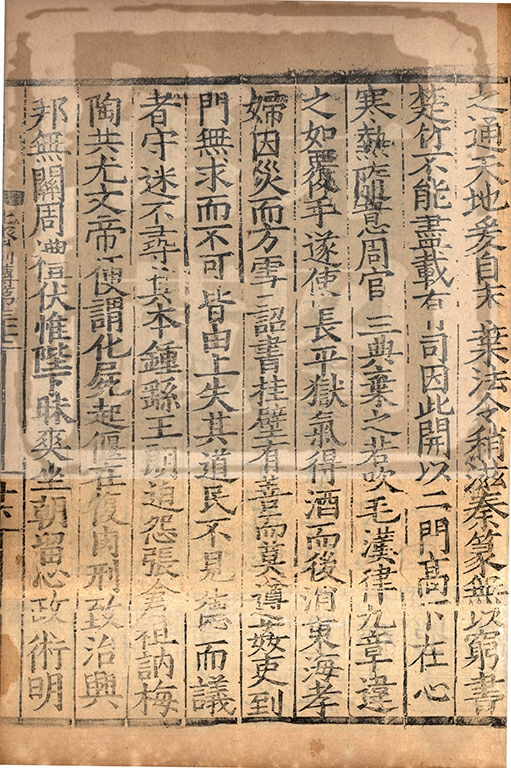 之通天地爰自末葉法令稍滋秦篆無以窮書
楚竹不能盡載有司因此開以二門高下在心
寒熱隨意周官三典棄之若吹毛漢律九章違
之如覆手遂使長平獄氣得酒而後消東海孝
婦因災而方雪詔書挂壁有善而莫遵姦吏到
門無求而不可皆由上失其道民不見德而議
者守迷不尋其本鍾繇王朗追怨張倉祖訥梅
陶共尤文帝便謂化屍起偃在復肉刑致治興
邦無關周典伏惟陛下昧爽坐朝留心政術明